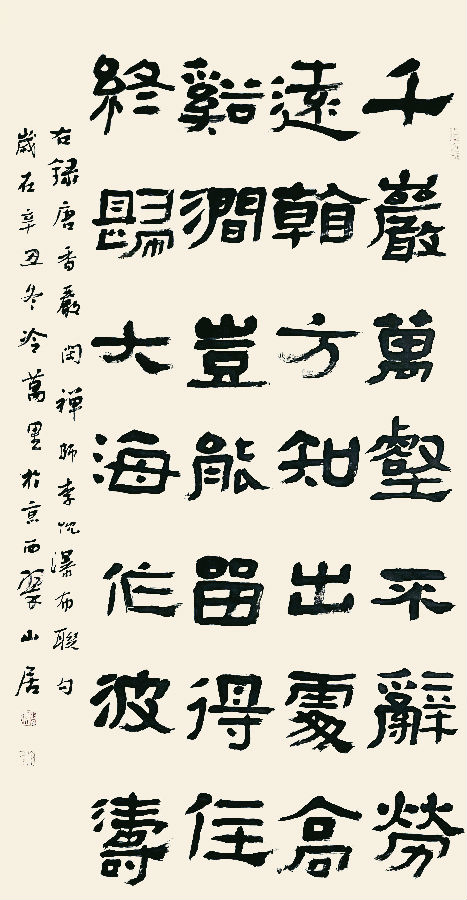 千巖萬壑不辭勞
遠看方知出處高
谿澗豈能留得住
終歸大海作波濤
右録唐香嚴閑禪師李忱瀑布聯句
歲在辛丑冬冷萬里於京西翠山居